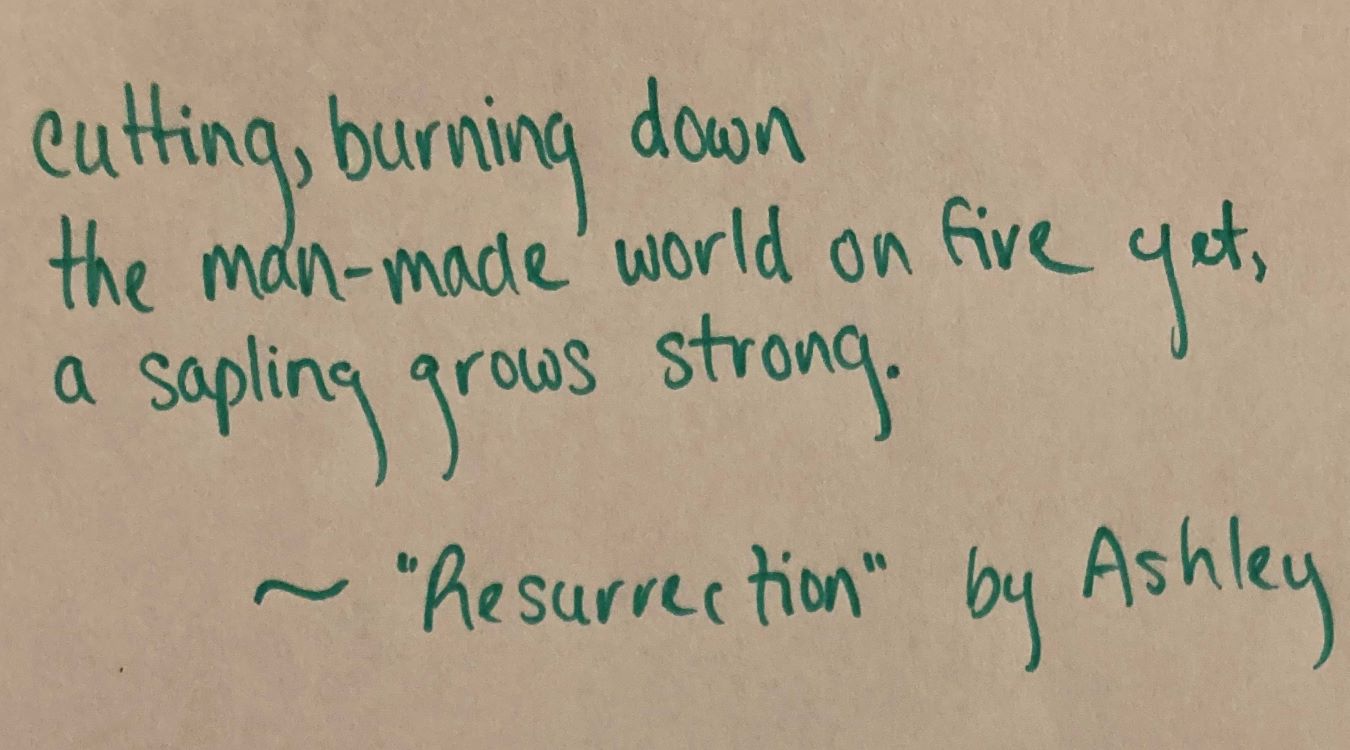 cutting, burning down
the man-made world on fire yet,
a sapling grows strong.
~ "Resurrection" by Ashley